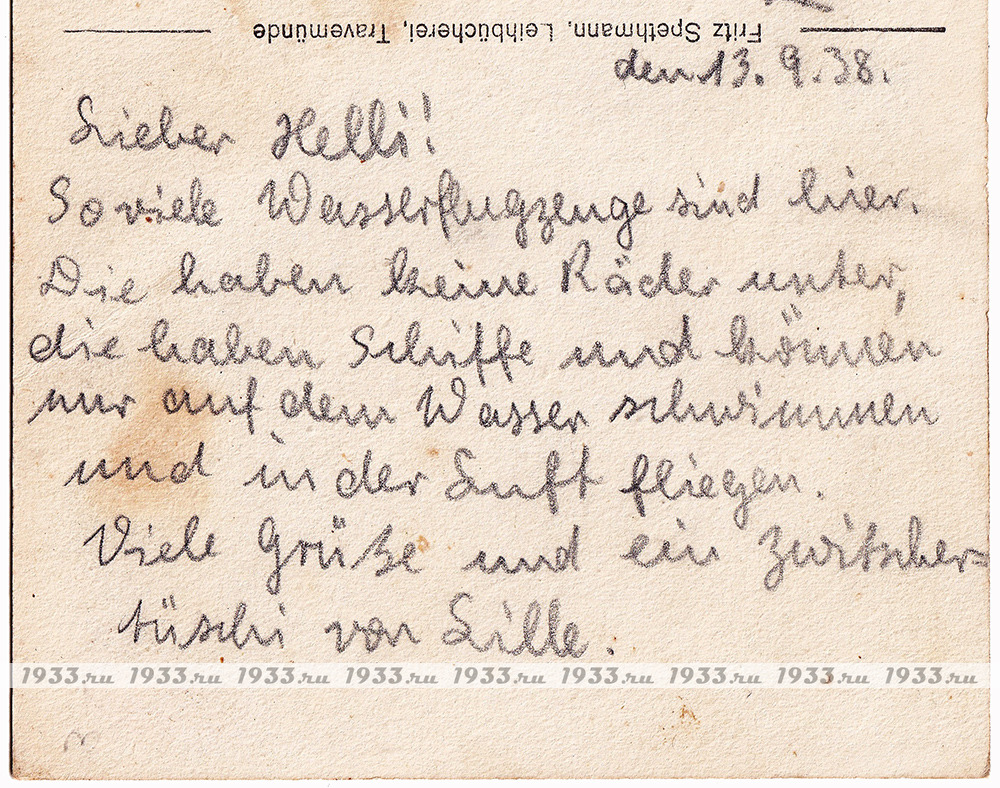 Fritz Spethmann, Leihbücherei, Travemünde
den 13. 9. 38.
Lieber Helli!
So viele Wasserflugzeuge sind hier.
Die haben keine Räder unter,
die haben Schiffe und können
nur auf dem Wasser schwimmen
und in der Luft fliegen.
Viele Grüße und ein zwitscher=
tüschi von Lille.
1933.ru 1933.ru 1933.ru 1933.ru 1933.ru 1933.ru 1933.ru 1933.ru 1933.ru